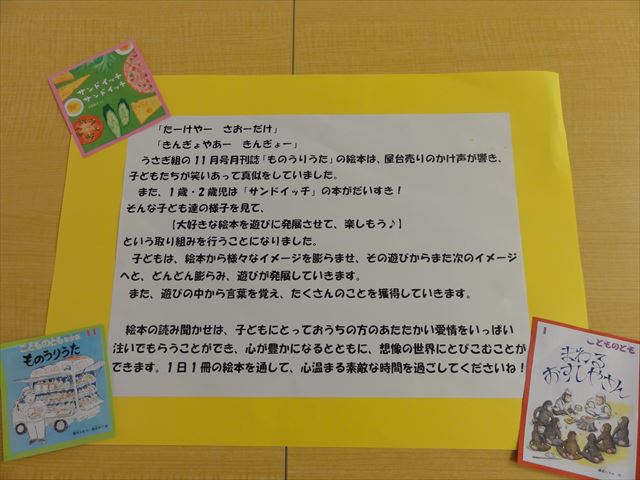 サンドイッチ
サンドイッチ
「たーけやー　さおーだけ」
「きんぎょやあー　きんぎょー」
うさぎ組の11月号月刊誌「ものうりうた」の絵本は、屋台売りのかけ声が響き、
子どもたちが笑いあって真似をしていました。
また、1歳・2歳児は「サンドイッチ」の本がだいすき！
そんな子ども達の様子を見て、
【大好きな絵本を遊びに発展させて、楽しもう♪】
という取り組みを行うことになりました。
子どもは、絵本から様々なイメージを膨らませ、その遊びからまた次のイメージ
へと、どんどん膨らみ、遊びが発展していきます。
また、遊びの中から言葉を覚え、たくさんのことを獲得していきます。
絵本の読み聞かせは、子どもにとっておうちの方のあたたかい愛情をいっぱい
注いでもらうことができ、心が豊かになるとともに、想像の世界にとびこむことが
できます。1日1冊の絵本を通して、心温まる素敵な時間を過ごしてくださいね！
こどものとも
11
ものうりうた
1
こどものとも
まわる
おすしやさん